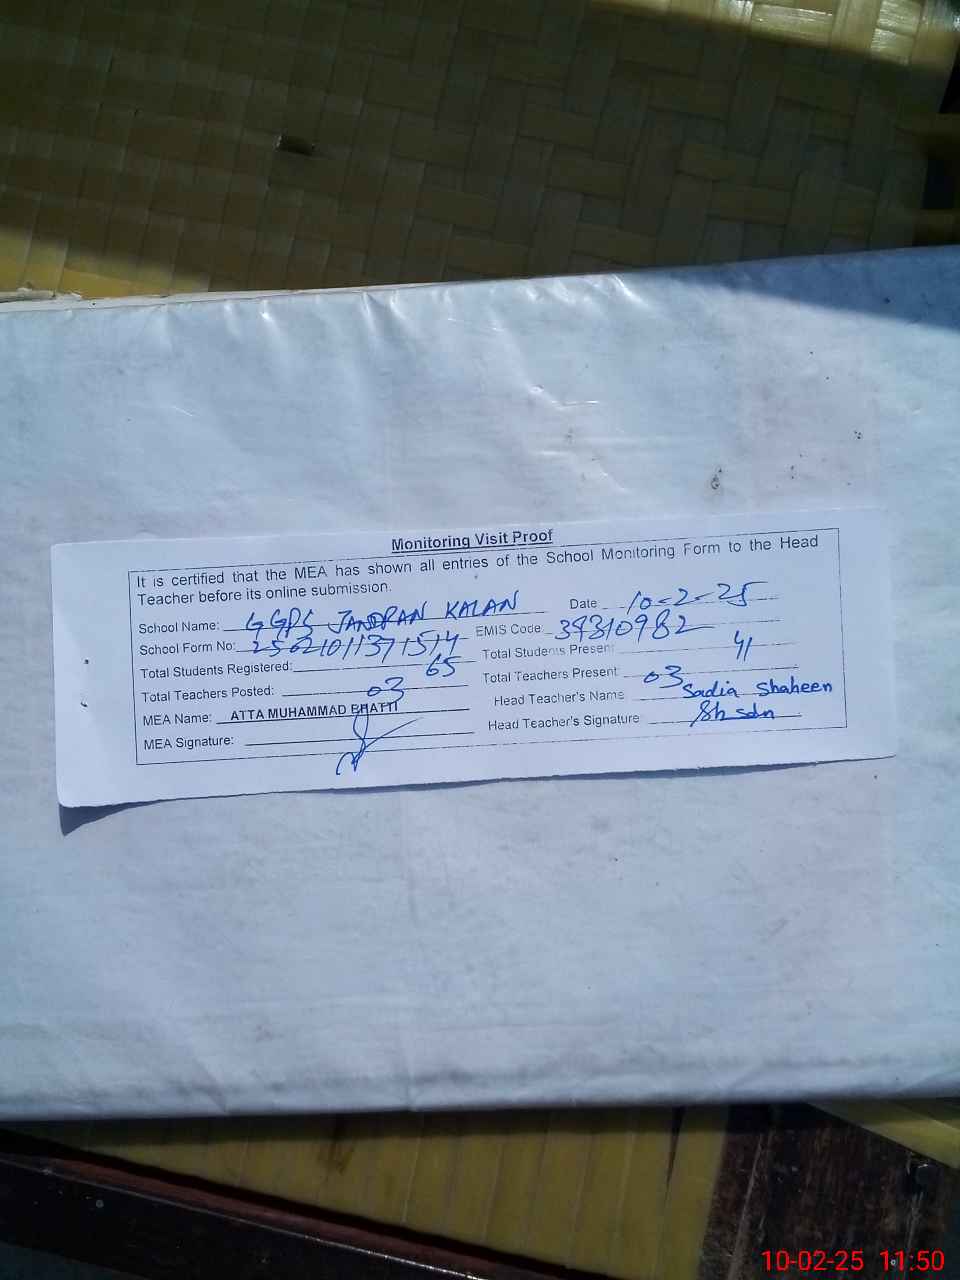 Monitoring Visit Proof
It is certified that the MEA has shown all entries of the School Monitoring Form to the Head
Teacher before its online submission.
School Name: GGPS JANDRAN KALAN Date 10-2-25
School Form No: 25021011371514 EMIS Code: 34310982
Total Students Registered: 65 Total Students Present: 41
Total Teachers Posted: 03 Total Teachers Present: 03
MEA Name: ATTA MUHAMMAD BHATTI Head Teacher's Name Sadia Shaheen
MEA Signature: Head Teacher's Signature
10-02-25 11:50